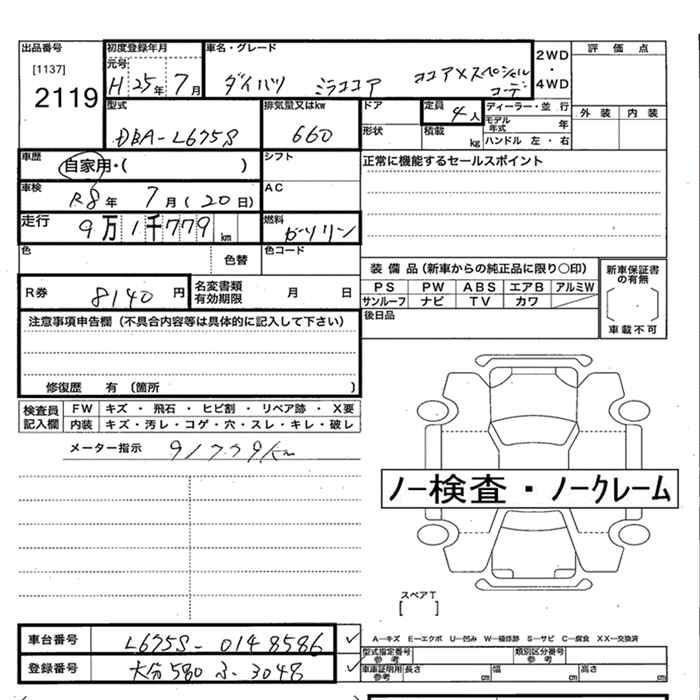 出品番号 初度登録年月 車名・グレード 2WD・4WD 評価点
[1137] 元号 H 25年 7月 ダイハツ ミラココア ココア×スペシャルコーデ
2119 型式 排気量又はkw ドア 定員 4人 ディーラー・並行 外装 内装
DBA-L675S 660 形状 積載 kg モデル年式 年 ハンドル 左・右
車歴 自家用・( ) シフト 正常に機能するセールスポイント
車検 R8年 7月(20日) AC
走行 9万1千779km 燃料 ガソリン
色 色替 色コード
装備品(新車からの純正品に限り〇印) 新車保証書の有無
R券 8140円 名変書類有効期限 月 日 PS PW ABS エアB アルミW
サンルーフ ナビ TV カワ [ ・ ]
注意事項申告欄(不具合内容等は具体的に記入して下さい) 後日品 車載不可
修復歴 有 (箇所 )
検査員記入欄 FW キズ・飛石・ヒビ割・リペア跡・X要
内装 キズ・汚レ・コゲ・穴・スレ・キレ・破レ
メーター指示 91779km
ノー検査・ノークレーム
スペアT
[ ]
車台番号 L675S-0148586 ✓ A―キズ E―エクボ U―凹み W―補修跡 S―サビ C―腐食 XX―交換済
型式指定番号 参考 類別区分番号 参考
登録番号 大分580ふ-3048 ✓ 車庫証明用 参考 長さ cm 幅 cm 高さ cm